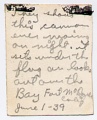 They show
this cannon
ever again
on night. it
sits under the
flag on look
out over the
Bay Fort McHenry
June 1-39